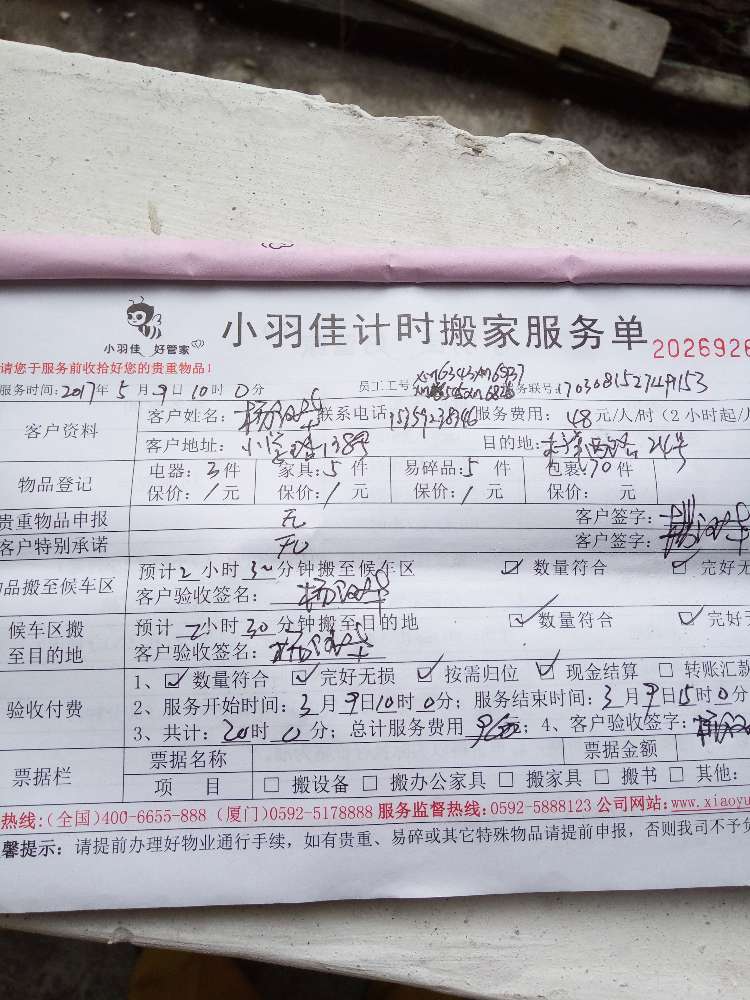 小羽佳 好管家
小羽佳计时搬家服务单
2026926
请您于服务前收拾好您的贵重物品！
服务时间：2017年 5月 9日 10时 0分 员工工号 务联号：
客户资料
客户姓名： 联系电话： 服务费用：48元/人/时（2小时起/
客户地址： 138号 目的地： 214号
物品登记
电器：3件 家具：5件 易碎品：5件 包裹：70件
保价：/元 保价：/元 保价：/元 保价： 元
贵重物品申报 无 客户签字：
客户特别承诺 无 客户签字：
品搬至候车区
预计2小时30分钟搬至候车区 ☑ 数量符合 完好无
客户验收签名：
候车区搬至目的地
预计2小时30分钟搬至目的地 ☑ 数量符合 ☑ 完好无
客户验收签名：
验收付费
1、☑ 数量符合 ☑ 完好无损 ☑ 按需归位 ☑ 现金结算 □ 转账汇款
2、服务开始时间：3月9日10时0分；服务结束时间：3月9日15时0分
3、共计：20时0分；总计服务费用 ；4、客户验收签字：
票据栏
票据名称 票据金额
项目 □ 搬设备 □ 搬办公家具 □ 搬家具 □ 搬书 □ 其他：
热线：（全国）400-6655-888（厦门）0592-5178888 服务监督热线：0592-5888123 公司网站：www.xiaoyu
馨提示：请提前办理好物业通行手续，如有贵重、易碎或其它特殊物品请提前申报，否则我司不予负